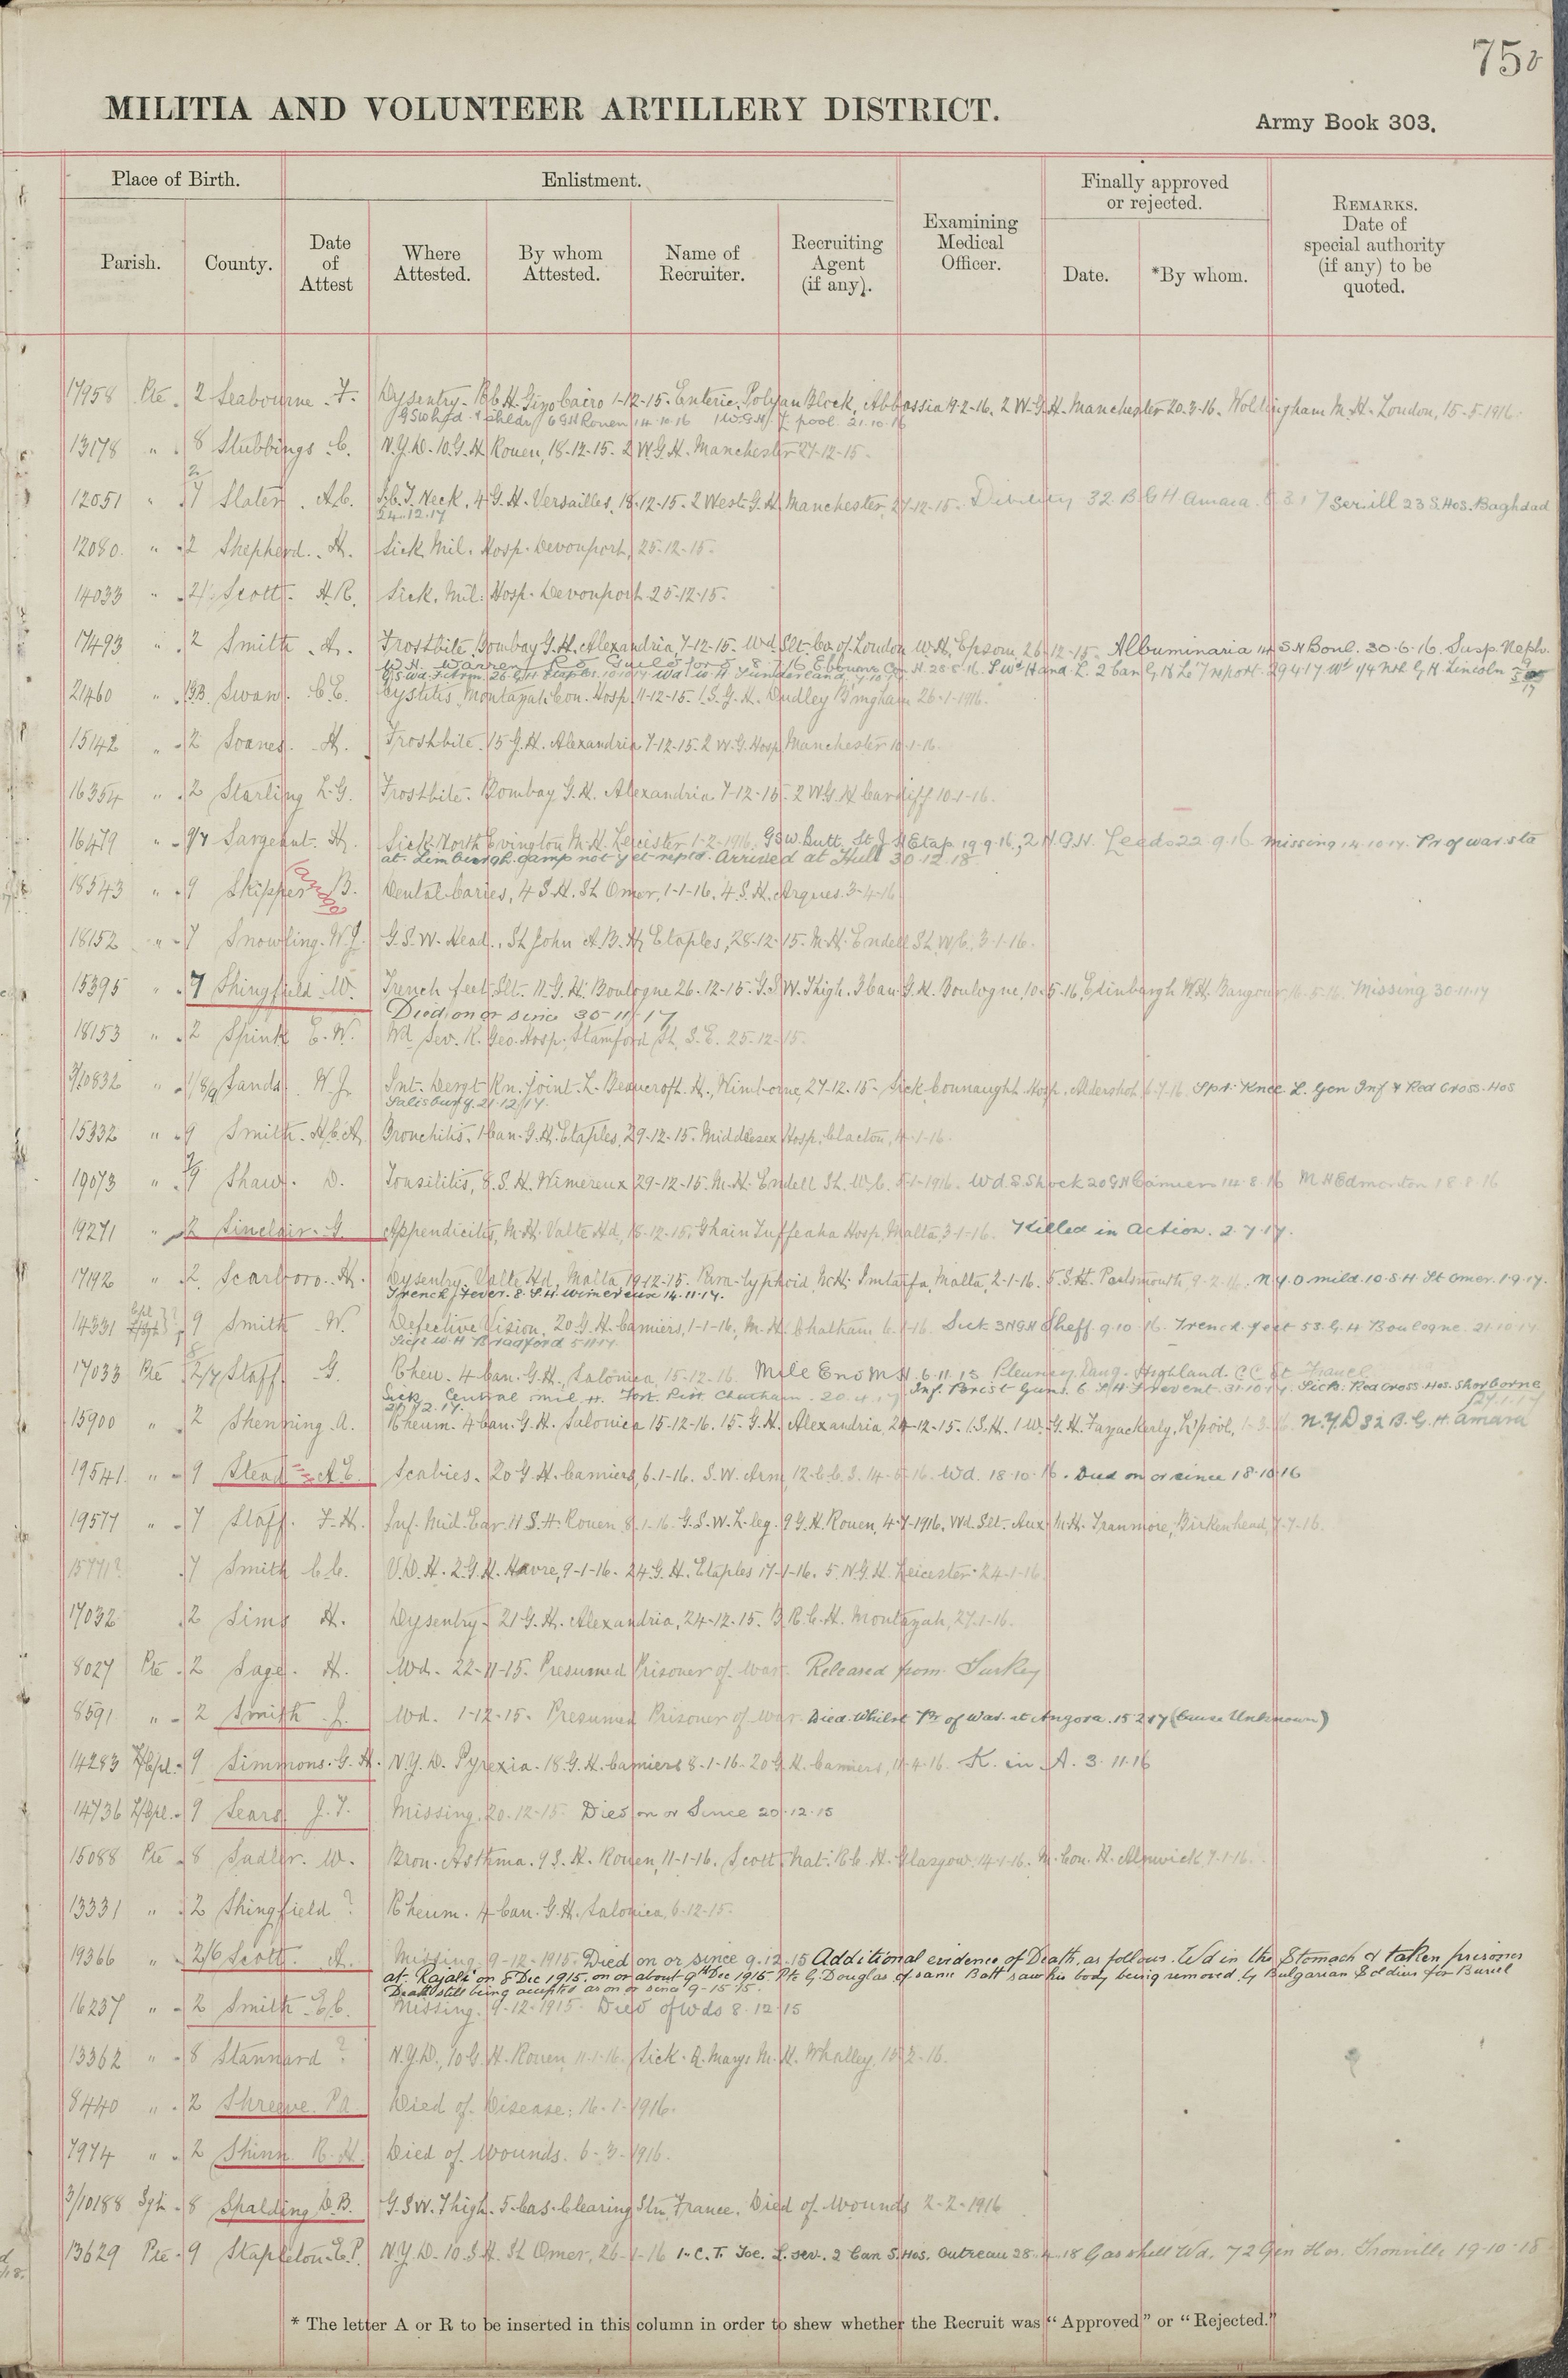 75
MILITIA AND VOLUNTEER ARTILLERY DISTRICT.
Army Book 303.
Place of Birth.
Enlistment.
Finally approved or rejected.
Parish.
County.
Date of Attest
Where Attested.
By whom Attested.
Name of Recruiter.
Recruiting Agent (if any).
Examining Medical Officer.
Date.
*By whom.
REMARKS. Date of special authority (if any) to be quoted.
17958 Pte. 2 Seabourne. F. Dysentry. Cairo 1-12-15. Enteric. Block, Abbassia 4-2-16. 2 W.G.H. Manchester 20.3.16. M.H. London, 15-5-1916.
6 G H Rouen 14.10.16 pool. 21.10.16
13178 " 8 Stubbings C. N.Y.D. 10.G.H. Rouen, 18-12-15. 2 W.G.H. Manchester 27-12-15.
12051 " 7 Slater. A.C. Neck. 4 G.H. Versailles, 18-12-15. 2 West. G.H. Manchester, 27-12-15. Debility 32 B G H Amara. Ser. ill 23 S. Hos. Baghdad
24.12.17
12080. " 2 Shepherd. H. Sick Mil. Hosp. Devonport, 25-12-15.
14033 " 2/ Scott. H.R. Sick. Mil. Hosp. Devonport 25-12-15.
17493 " 2 Smith. A. Frostbite. Bombay G.H. Alexandria, 7-12-15. Wd. Slt. Co. of London W.H. Epsom 26-12-15. Albuminaria 14 S H Boul. 30.6.16. Susp. Neph.
21460 " Swan. C.E. Cystitis. Montazah Con. Hosp. 11-12-15. 1.S.G.H. Dudley Bingham 26-1-1916.
15142 " 2 Soanes. H. Frostbite. 15 G.H. Alexandria 7-12-15. 2 W.G. Hosp. Manchester 10-1-16.
16354 " 2 Starling L.G. Frostbite. Bombay G.H. Alexandria 7-12-15. 2 W.G.H. Cardiff 10-1-16.
16479 " 9/7 Sargeant. H. Sick North Evington M.H. Leicester 1-2-1916. GSW. Butt. St J H Etap. 19.9.16, 2 N.G.H. Leeds 22.9.16 Missing 14.10.17. Pr of war sta
at. Limburgh camp not yet repd. Arrived at Hull 30.12.18
18543 " 9 Skipper B. Dental Caries, 4 S.H. St Omer, 1-1-16. 4.S.H. Arques. 3-4-16
18152 " 7 Snowling. W.J. G.S.W. Head., St John A.B.H. Etaples, 28-12-15. M.H. Endell St. W.C. 3-1-16.
15395 " 7 Shingfield W. Trench feet Slt. 11.G.H. Boulogne 26-12-15. G.S.W. Thigh. 3 Can. G.H. Boulogne, 10-5-16, Edinburgh W.H. Bangour 16.5.16. Missing 30.11.17
Died on or since 30-11-17
18153 " 2 Spink E.W. Wd Sev. K. Geo. Hosp. Stamford St, S.E. 25-12-15.
3/10832 " 1/8/9 Sands. W.J. Int. Dergt Kn. joint. L. Beaucroft. H., Wimborne, 27-12-15. Sick Connaught Hosp. Aldershot 6.7.16 Spr. Knee. L. Gen Inf & Red Cross. Hos
Salisbury. 21/12/17.
15332 " 9 Smith. H.C.A. Bronchitis. 1 Can. G.H. Etaples, 29-12-15. Middlesex Hosp. Clacton, 4-1-16.
19073 " 9 Shaw. D. Tonsilitis, 8.S.H. Wimereux 29-12-15. M.H. Endell St. W.C. 5-1-1916. Wd. S. Shock 20 G H Camiers 14.8.16 M H Edmonton 18.8.16
19271 " 2 Sinclair. G. Appendicitis, M.H. Valte Hd, 18-12-15. Ghain Tuffeaha Hosp. Malta, 3-1-16. Killed in Action. 2.7.17.
17192 " 2. Scarboro. H. Dysentry. Valte Hd, Malta, 19-12-15. Para-typhoid, M.H. Imtarfa, Malta, 2-1-16. 5.S.H. Portsmouth 9-2-16. N.Y.D mild. 10.S.H. St Omer. 1.9.17.
Trench Fever. 8.S.H. Wimereux 14.11.17.
14331 9 Smith W. Defective Vision. 20.G.H. Camiers, 1-1-16., M.H. Chatham, Sick 3 N G H Sheff. 9.10.16. Trench. feet 53.G.H Boulogne. 21.10.17
Sick W H Bradford
17033 Pte 2/7 Staff. G. Rheu. 4 Can. G.H. Salonica, 15-12-16. Mile End M H 6.11.15 Pleurisy. Lang. Highland. C.C.St France
Sick, Central mil. H. Fort. Pitt. Chatham. 20.4.17 Sick. Red Cross Hos. Sherborne
15900 " 2 Shenning. A. Rheum. 4 Can. G.H. Salonica 15-12-16. 15.G.H. Alexandria, 24-12-15. 1.S.H. 1 W.G.H. Fazackerly, L'pool, N.Y.D 32 B.G.H. Amara
19541. " 9 Stead A.E. Scabies. 20 G.H. Camiers, 6-1-16. S.W. Arm, 12.C.C.S. 14-6-16. Wd. 18.10.16. Died on or since 18.10.16
19577 " 7 Staff. F.H. Inf. Mid. Ear. 11.S.H. Rouen, 8-1-16. G.S.W. L. leg. 9 G.H. Rouen, 4-7-1916. Wd. Slt. Aux. M.H. Tranmore, Birkenhead, 7-7-16.
7 Smith C.C. V.D.H. 2.G.H. Havre, 9-1-16. 24.G.H. Etaples 17-1-16. 5.N.G.H. Leicester 24-1-16.
17032 2 Sims H. Dysentry. 21 G.H. Alexandria, 24-12-15. B.R.C.H. Montazah, 27-1-16.
8027 Pte 2 Sage. H. Wd. 22-11-15. Presumed Prisoner of War. Released from Turkey
8591 " 2 Smith. J. Wd. 1-12-15. Presumed Prisoner of War. Died Whilst Pr of War. at Angora. 15.2.17 (Cause Unknown)
14283 9 Simmons. G.H. N.Y.D. Pyrexia. 18.G.H. Camiers 8-1-16. 20 G.H. Camiers, 11-4-16. K. in A. 3.11.16
14736 L/Cpl. 9 Sears J.T. Missing. 20-12-15. Died on or Since 20.12.15
15088 Pte 8 Sadler. W. Bron. Asthma. 9 S.H. Rouen, 11-1-16. Scott. Nat. R.C.H. Glasgow. 14-1-16. M. Con. H. Alnwick 7-1-16.
13331 " 2 Shingfield ? Rheum. 4 Can. G.H. Salonica, 6-12-15.
19366 " 2/6 Scott. A. Missing, 9-12-1915. Died on or since 9.12.15 Additional evidence of Death. as follows. Wd in the Stomach & taken prisoner
at. Rajali on 8 Dec 1915. on or about 9th Dec 1915 Pte G. Douglas of same Batt saw his body being removed by Bulgarian Soldiers for Burial
Death still being accepted as on or since
16237 " 2 Smith E.C. Missing. 9-12-1915. Died of Wds 8.12.15
13362 " 8 Stannard ? N.Y.D., 10 G.H. Rouen, 11-1-16. Sick. Q. Marys M.H. Whalley, 15-2-16.
8440 " 2 Shreeve. Died of Disease: 16-1-1916.
7974 " 2 Shinn. R.H. Died of Wounds. 6-3-1916.
3/10188 Sgt. 8 Spalding D.B. G.S.W. Thigh. 5. Cas. Clearing Stn, France. Died of Wounds 2-2-1916
13629 Pte. 9 Stapleton. E.P. N.Y.D. 10.S.H. St Omer, 26-1-16 1. C.T. Toe. L. sev. 2 Can S. Hos. Outreau 28.4.18 Gas shell Wd. 72 Gen Hos. Trouville 19-10-18
* The letter A or R to be inserted in this column in order to shew whether the Recruit was "Approved" or "Rejected."